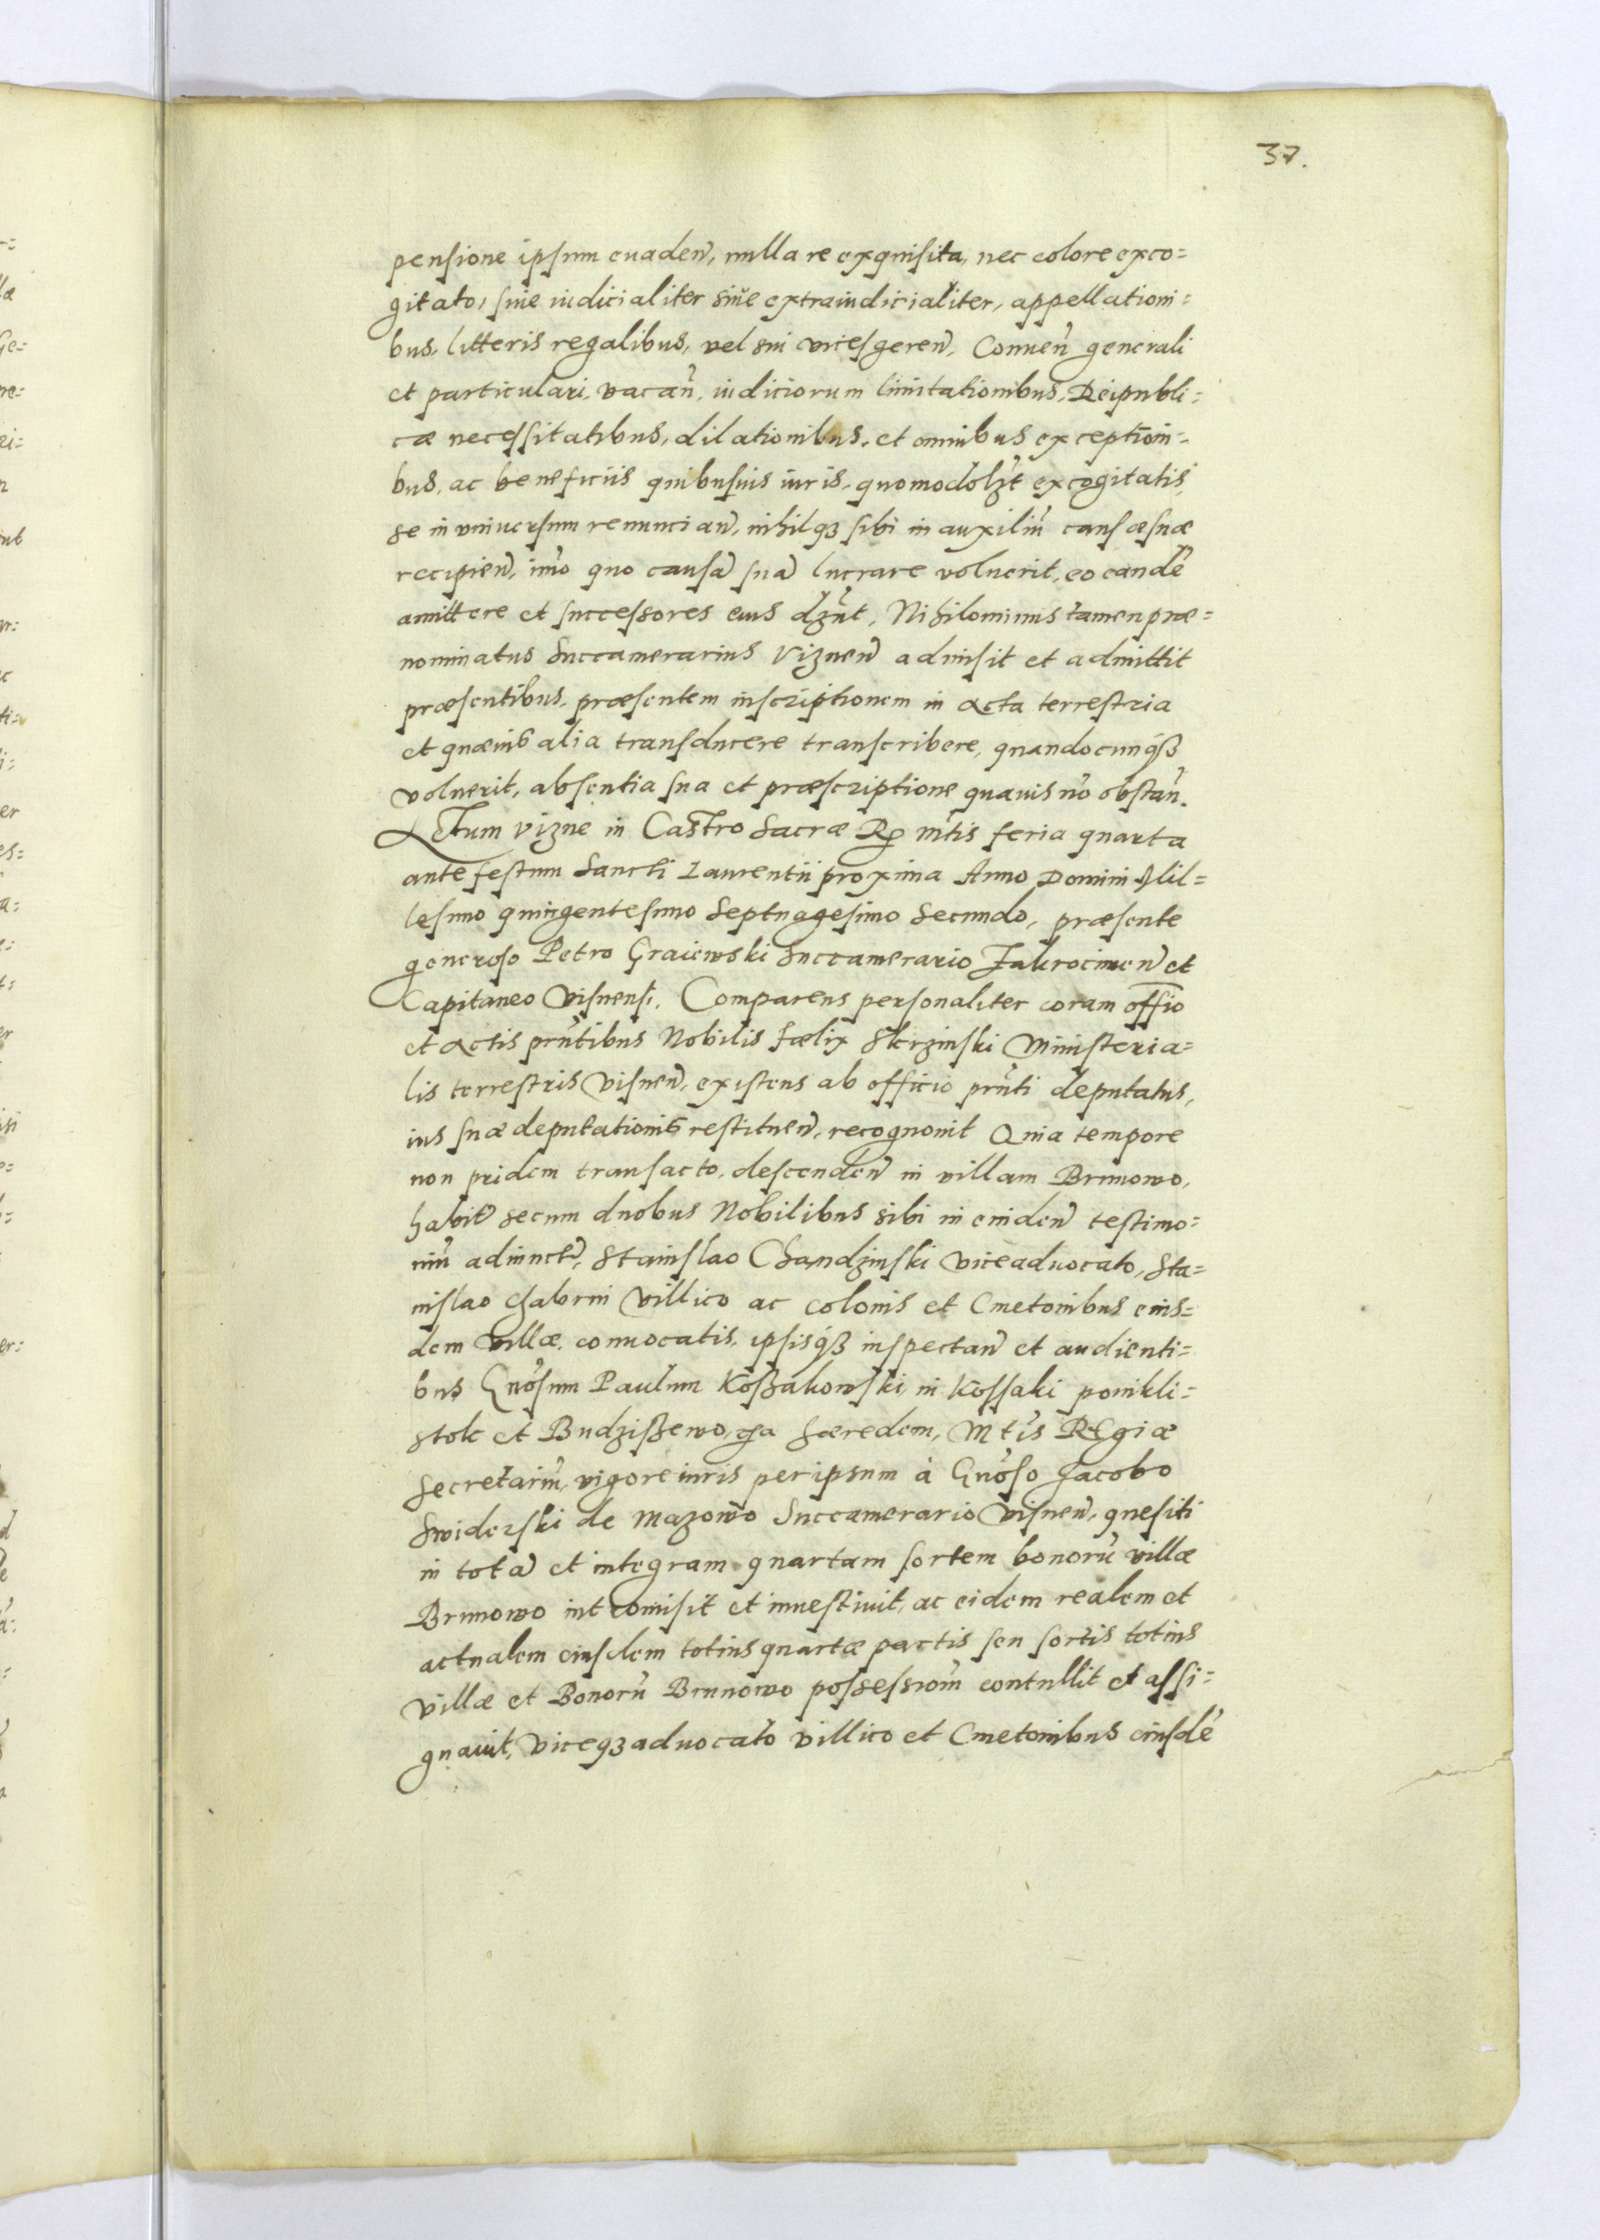 37.
pensione ipsum euaden̄, nulla re exquisita, nec colore exco=
gitato, siue iudicialiter siue extraiudicialiter, appellationi=
bus, litteris regalibus, vel sui vicesgeren̄, Conuen̄ generali
et particulari, vacan̄, iudiciorum limitationibus, Reipubli=
cæ necessitatibus, dilationibus, et omnibus exception̄=
bus, ac beneficiis quibusuis iuris, quomodolȝt excogitatis,
se in vniuersum renuncian̄, nihilqȝ sibi in auxiliū causæ suæ
recipien̄, imo quo causā suā lucrare voluerit, eo eandē
amittere et successores eius dȝnt, Nihilominus tamen præ=
nominatus Succamerarius Viznen̄ admisit et admittit
præsentibus, præsentem inscriptionem in Acta terrestria
et quæuis alia transducere transcribere, quandocunqß
voluerit, absentia sua et præscriptione quauis nō obstan̄.
Actum Vizne in Castro Sacræ R mtis feria quarta
ante festum Sancti Laurentii proxima Anno Domini Mil=
lesimo quingentesimo Septuagesimo Secundo, præsente
generoso Petro Graiewski Succamerario Zakrocimen̄ et
Capitaneo Visnensi. Comparens personaliter coram offio
et Actis prn̄tibus Nobilis Fælix Skrzinski Ministeria=
lis terrestris Visnen̄, existens ab officio prn̄ti deputatus,
ius suæ deputationis restituen̄, recognouit Quia tempore
non pridem transacto, descenden̄ in villam Brunowo,
habit̄ secum duobus Nobilibus sibi in euiden̄ testimo=
niū adiunct̄, Stanislao Chandzinski viceaduocato, Sta=
nislao Gabrin villico ac colonis et Cmetonibus eius=
dem villæ, conuocatis, ipsisqß inspectan̄ et audienti=
bus Gnōsum Paulum Koßakowski, in Kossaki ponikli=
stok et Budzißewo, hæredem, Mtis REgiæ
Secretariū, vigore iuris per ipsum à Gnōso Jacobo
Swiderski de Mazowo Succamerario Visnen̄, quesiti
in totā et integram quartam sortem bonorū villæ
Brunowo intromisit et inuestiuit, ac eidem realem et
actualem eiusdem totius quartæ partis seu sortis totius
villæ et Bonorū Brunowo possessionē contullit et assi=
gnauit, viceqȝ aduocato villico et Cmetonibus eiusdē